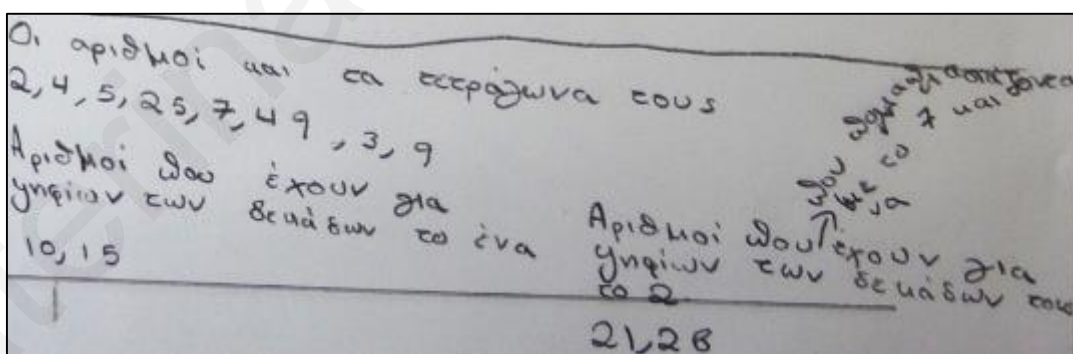 Οι αριθμοί και τα τετράγωνα τους
2, 4, 5, 25, 7, 49, 3, 9
Αριθμοί που έχουν για
ψηφίων των δεκάδων το ένα
10, 15
Αριθμοί που έχουν για
ψηφίων των δεκάδων τους
το 2
21, 28
που
με το 7 και